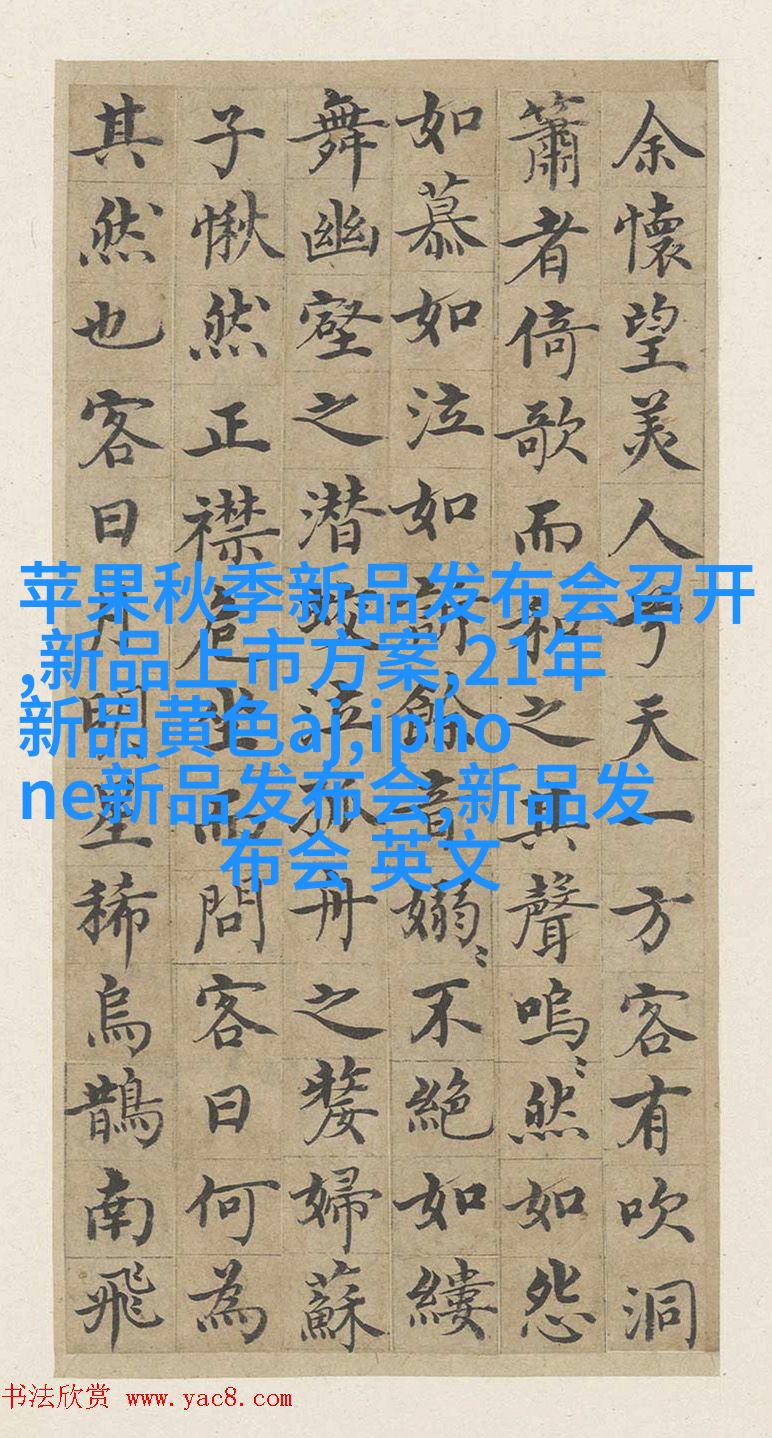 余懷望美人兮天一方客有吹洞
簫者倚歌而和之其聲嗚〻然如怨
如慕如泣如訴餘音嫋〻不絕如縷
舞幽壑之潜蛟泣孤舟之嫠婦蘇
子愀然正襟危坐而問客曰何為
其然也客曰月明星稀烏鵲南飛
苹果秋季新品发布会召开
,新品上市方案,21年
新品黄色aj,ipho
ne新品发布会,新品发
布会 英文
书法欣赏 www.yac8.com